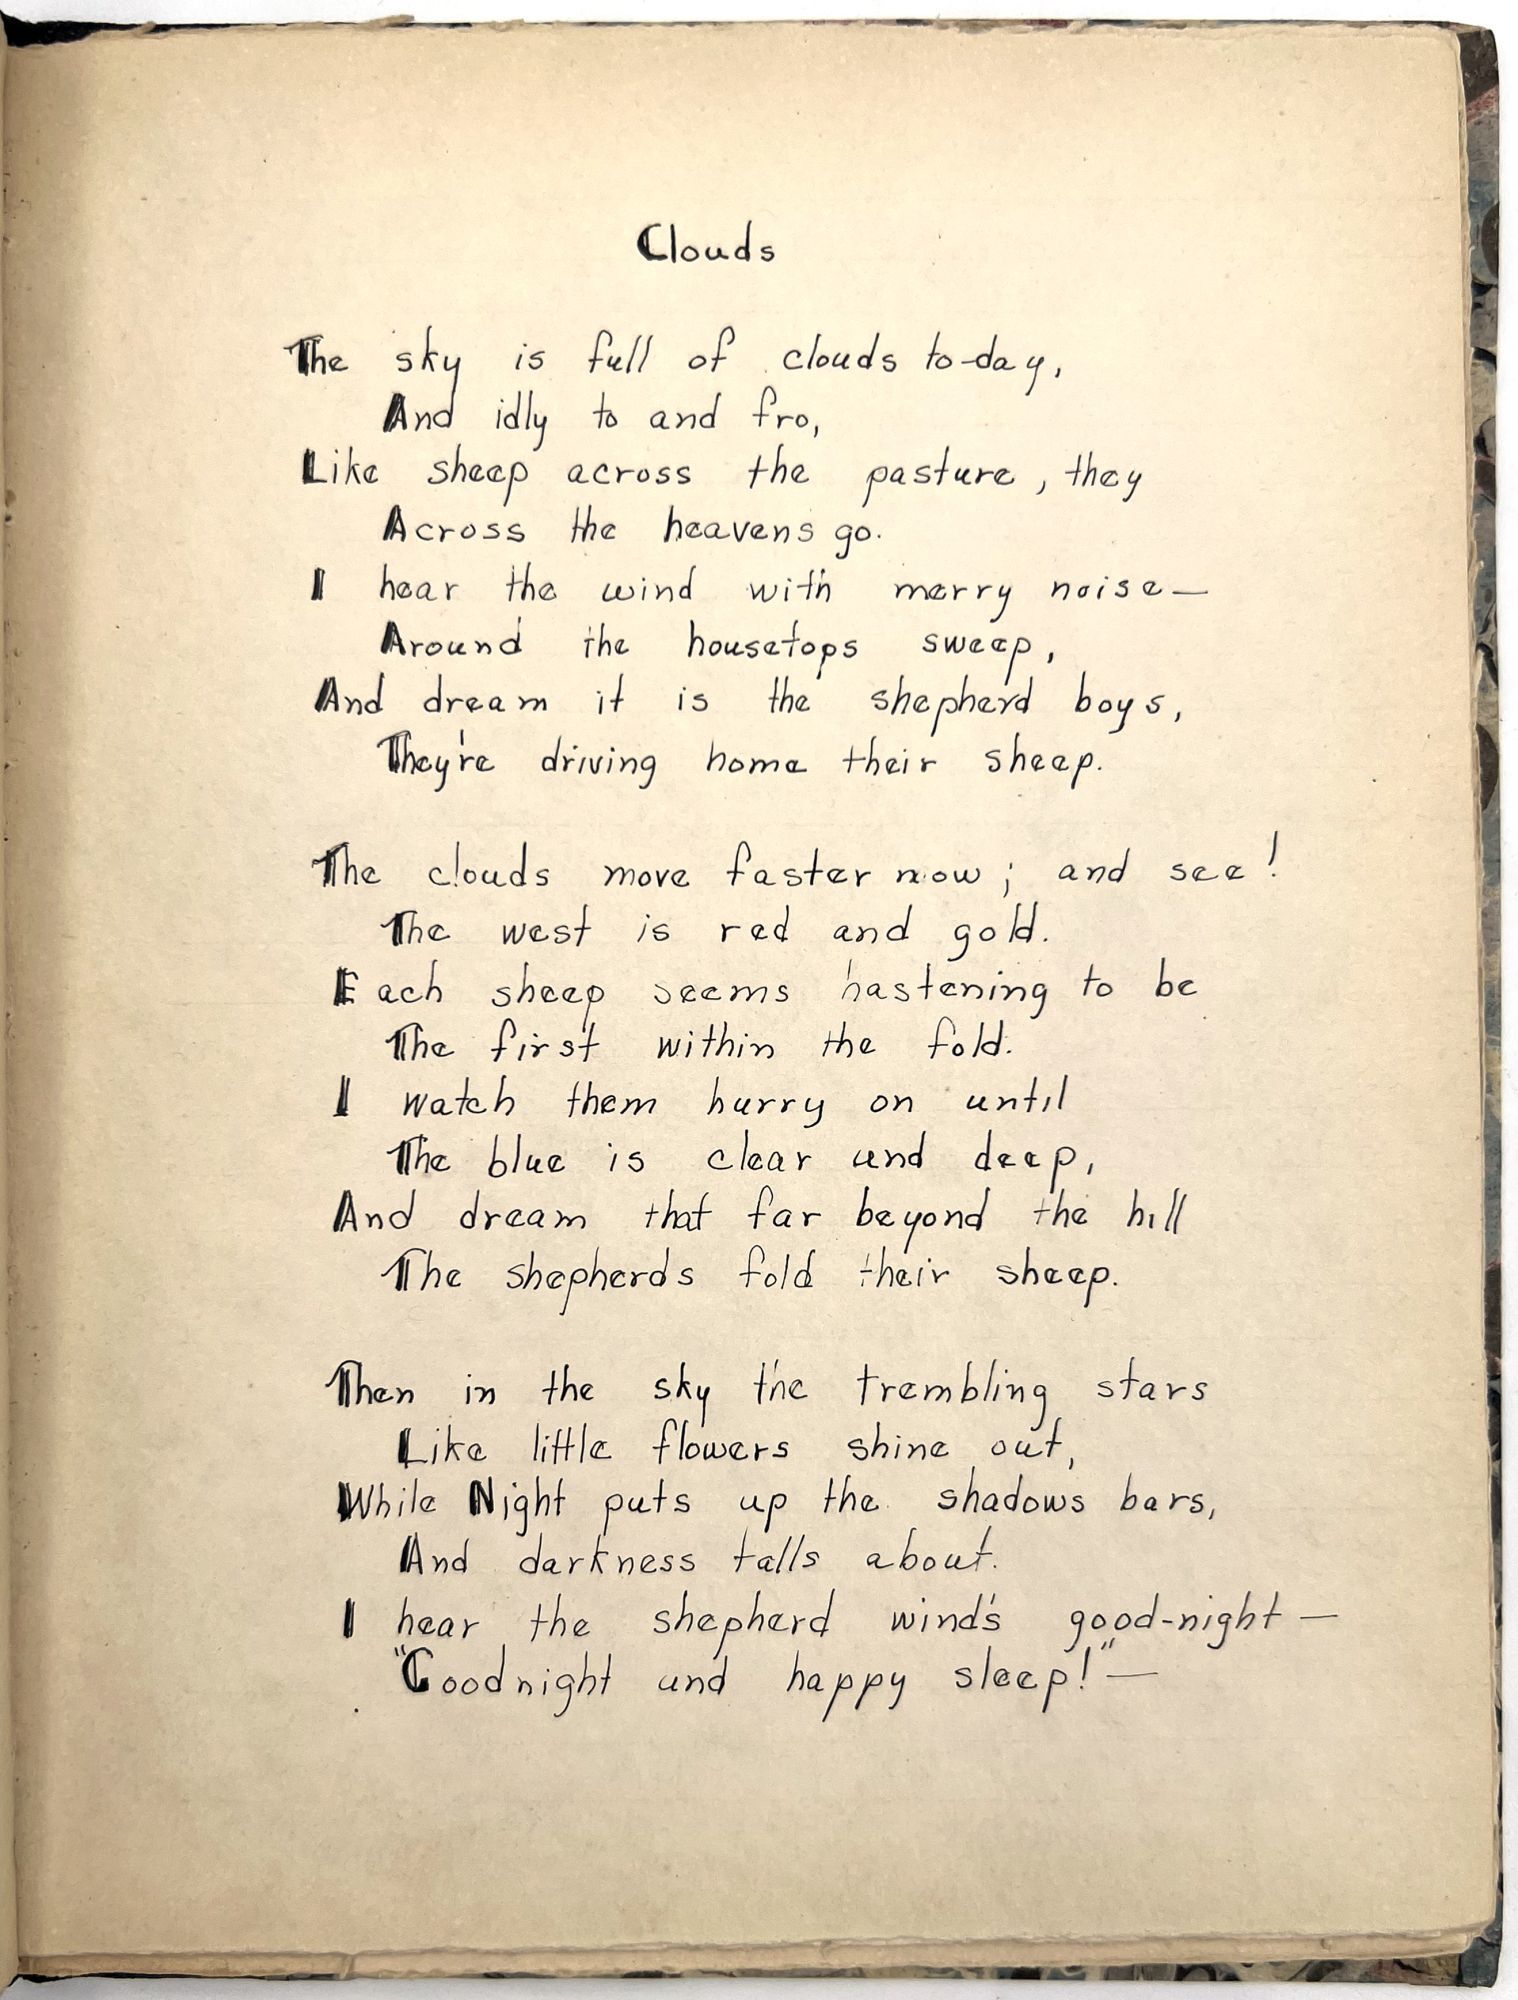 Clouds
The sky is full of clouds to-day,
And idly to and fro,
Like sheep across the pasture, they
Across the heavens go.
I hear the wind with merry noise—
Around the housetops sweep,
And dream it is the shepherd boys,
They're driving home their sheep.
The clouds move faster now; and see!
The west is red and gold.
Each sheep seems hastening to be
The first within the fold.
I watch them hurry on until
The blue is clear and deep,
And dream that far beyond the hill
The shepherds fold their sheep.
Then in the sky the trembling stars
Like little flowers shine out,
While Night puts up the shadows bars,
And darkness falls about.
I hear the shepherd wind's good-night—
"Goodnight and happy sleep!"—